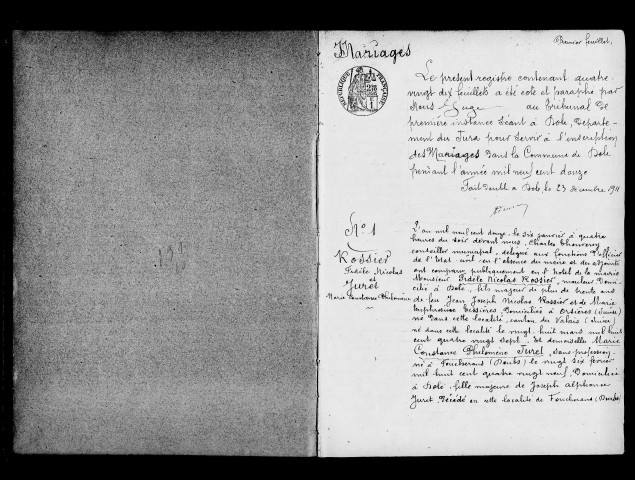 Premier feuillet,
Mariages
RÉPUBLIQUE FRANÇAISE
Le présent registre contenant quatre
vingt dix feuillets a été coté et paraphé par
Nous Juge au tribunal de
première instance séant à Dole, Départe-
ment du Jura pour servir à l'inscription
des Mariages dans la Commune de Dole
pendant l'année mil neuf cent douze
Fait double à Dole, le 23 décembre 1911
No 1
Rossier
Fidèle Nicolas
et
Juret
Marie Constance Philomène
L'an mil neuf cent douze, le six janvier à quatre
heures du soir devant nous, Charles
conseiller municipal, délégué aux fonctions d'officier
de l'Etat civil en l'absence du maire et des adjoints
ont comparu publiquement en l'hotel de la mairie
Monsieur Fidèle Nicolas Rossier, mouleur domi-
cilié à Dole, fils majeur de plus de trente ans
de feu Jean Joseph Nicolas Rossier et de Marie
Euphrosine domiciliés à Orsières (Suisse)
né dans cette localité, canton du Valais (Suisse)
né dans cette localité le vingt huit mars mil huit
cent quatre vingt sept. Et demoiselle Marie
Constance Philomène Juret, sans profession
né à Foucherans (Doubs) le vingt six février
mil huit cent quatre vingt neuf, domiciliée
à Dole, fille majeure de Joseph Alphonse
Juret, décédé en cette localité de Foucherans (Doubs)